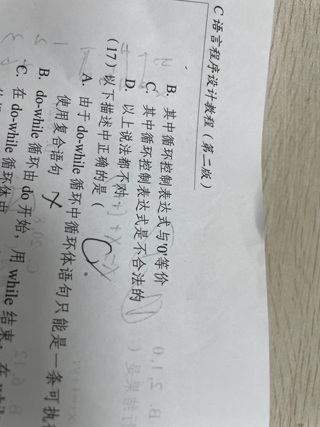 C 语言程序设计教程(第二版)
B. 其中循环控制表达式与'0'等价
C. 其中循环控制表达式是不合法的
D. 以上说法都不对
(17) 以下描述中正确的是( C )。
A. 由于 do-while 循环中循环体语句只能是一条可执
使用复合语句
B. do-while 循环由 do 开始,用 while 结束
C. 在 do-while 循环体中